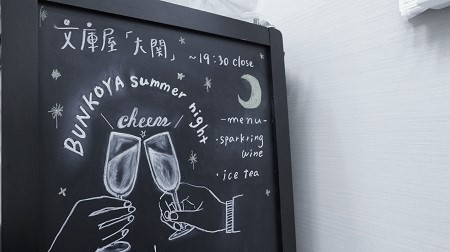 文庫屋「大関」 ~19:30 close
BUNKOYA summer night
cheers
-menu-
・sparkring
wine
・ice tea